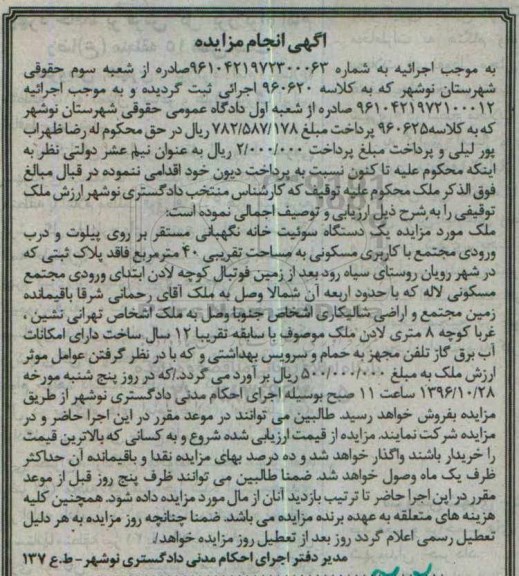 آگهی انجام مزایده
به موجب اجرائیه به شماره ۹۶۱۰۴۲۱۹۷۲۳۰۰۰۶۳صادره از شعبه سوم حقوقی
شهرستان نوشهر که به کلاسه ۹۶۰۶۲۰ اجرائی ثبت گردیده و به موجب اجرائیه
۹۶۱۰۴۲۱۹۷۲۱۰۰۰۱۲ صادره از شعبه اول دادگاه عمومی حقوقی شهرستان نوشهر
که به کلاسه۹۶۰۶۲۵ پرداخت مبلغ ۷۸۲/۵۸۷/۱۷۸ ریال در حق محکوم له رضا ظهراب
پور لیلی و پرداخت مبلغ پرداخت ۲/۰۰۰/۰۰۰ ریال به عنوان نیم عشر دولتی نظر به
اینکه محکوم علیه تا کنون نسبت به پرداخت دیون خود اقدامی ننموده در قبال مبالغ
فوق الذکر ملک محکوم علیه توقیف که کارشناس منتخب دادگستری نوشهر ارزش ملک
توقیفی را به شرح ذیل ارزیابی و توصیف اجمالی نموده است:
ملک مورد مزایده یک دستگاه سوئیت خانه نگهبانی مستقر بر روی پیلوت و درب
ورودی مجتمع با کاربری مسکونی به مساحت تقریبی ۴۰ مترمربع فاقد پلاک ثبتی که
در شهر رویان روستای سیاه رود بعد از زمین فوتبال کوچه لادن ابتدای ورودی مجتمع
مسکونی لاله که با حدود اربعه آن شمالا وصل به ملک آقای رحمانی شرقا باقیمانده
زمین مجتمع و اراضی شالیکاری اشخاص جنوبا وصل به ملک اشخاص تهرانی نشین .
غربا کوچه ۸ متری لادن ملک موصوف با سابقه تقریبا ۱۲ سال ساخت دارای امکانات
آب برق گاز تلفن مجهز به حمام و سرویس بهداشتی و که با در نظر گرفتن عوامل موثر
ارزش ملک به مبلغ ۵۰۰/۰۰۰/۰۰۰ ریال بر آورد می گردد.که در روز پنج شنبه مورخه
۱۳۹۶/۱۰/۲۸ ساعت ۱۱ صبح بوسیله اجرای احکام مدنی دادگستری نوشهر از طریق
مزایده بفروش خواهد رسید. طالبین می توانند در موعد مقرر در این اجرا حاضر و در
مزایده شرکت نمایند. مزایده از قیمت ارزیابی شده شروع و به کسانی که بالاترین قیمت
را خریدار باشند واگذار خواهد شد و ده درصد بهای مزایده نقدا و باقیمانده آن حداکثر
ظرف یک ماه وصول خواهد شد. ضمنا طالبین می توانند ظرف پنج روز قبل از موعد
مقرر در این اجرا حاضر تا ترتیب بازدید آنان از مال مورد مزایده داده شود. همچنین کلیه
هزینه های متعلقه به عهده برنده مزایده می باشد. ضمنا چنانچه روز مزایده به هر دلیل
تعطیل رسمی اعلام گردد روز بعد از تعطیل روز مزایده خواهد./
مدیر دفتر اجرای احکام مدنی دادگستری نوشهر - ط.ع ۱۳۷